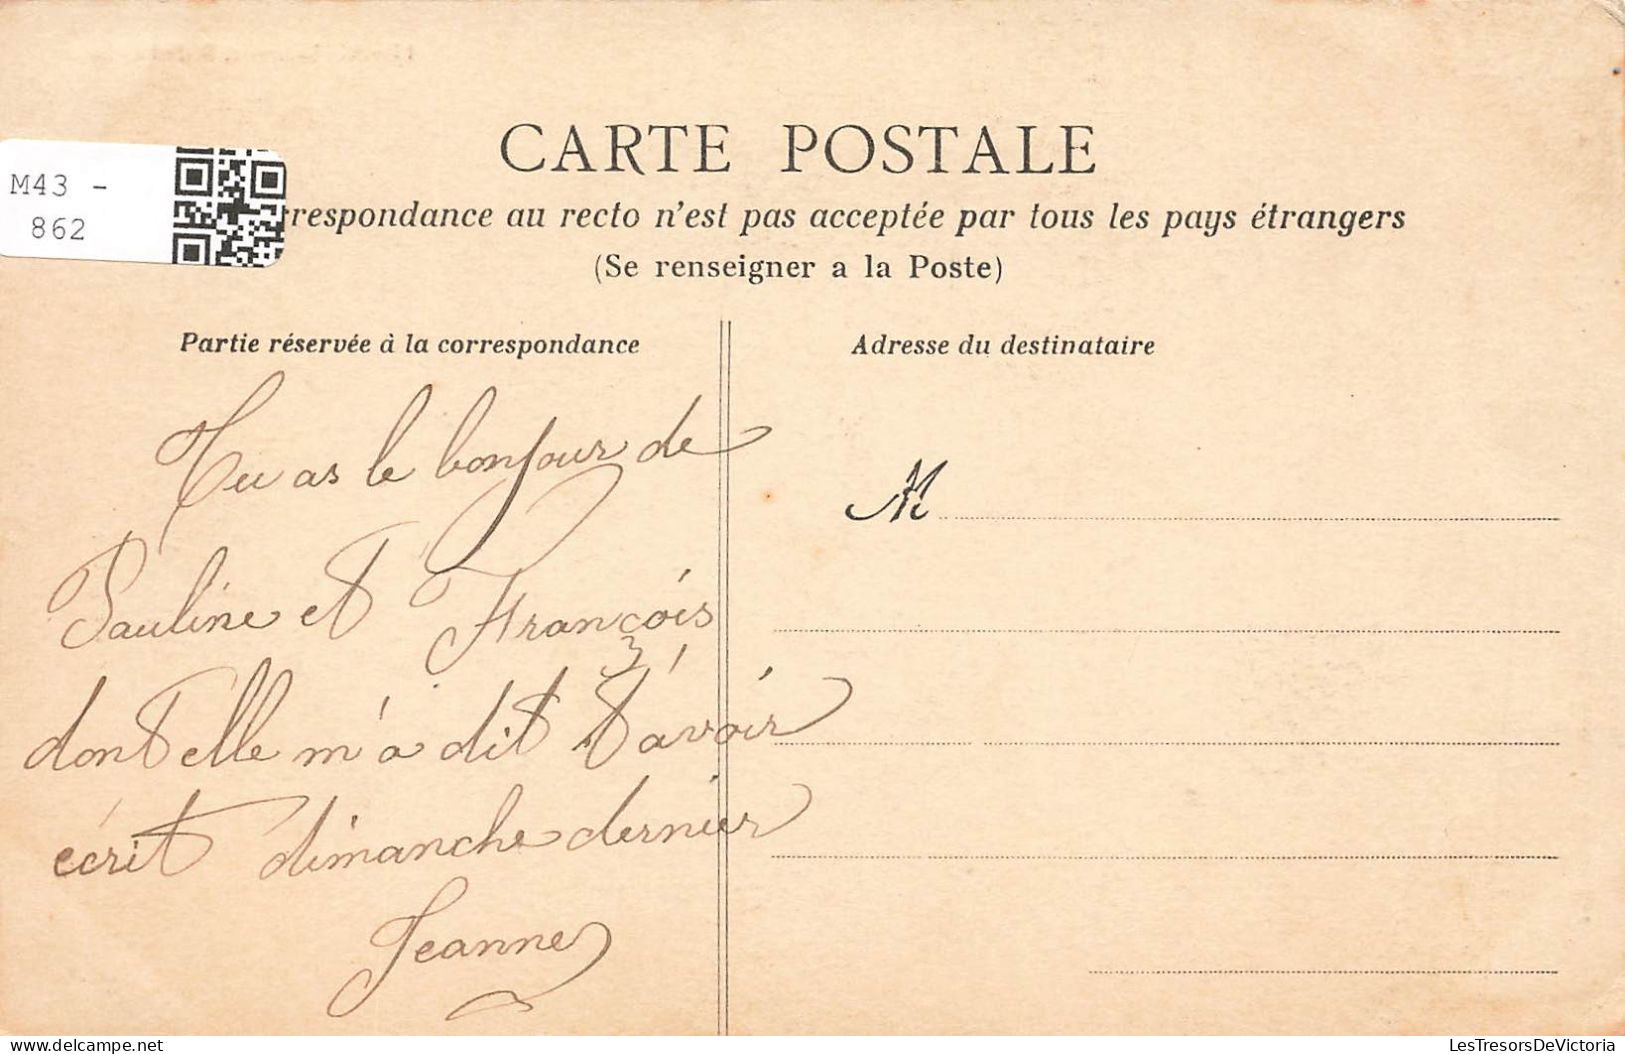 CARTE POSTALE
M43 -
862
rrespondance au recto n'est pas acceptée par tous les pays étrangers
(Se renseigner a la Poste)
Partie réservée à la correspondance
Adresse du destinataire
Tu as le bonjour de
Pauline et François
dont elle m'a dit t'avoir
écrit dimanche dernier
Jeanne
M
delcampe.net
LesTresorsDeVictoria